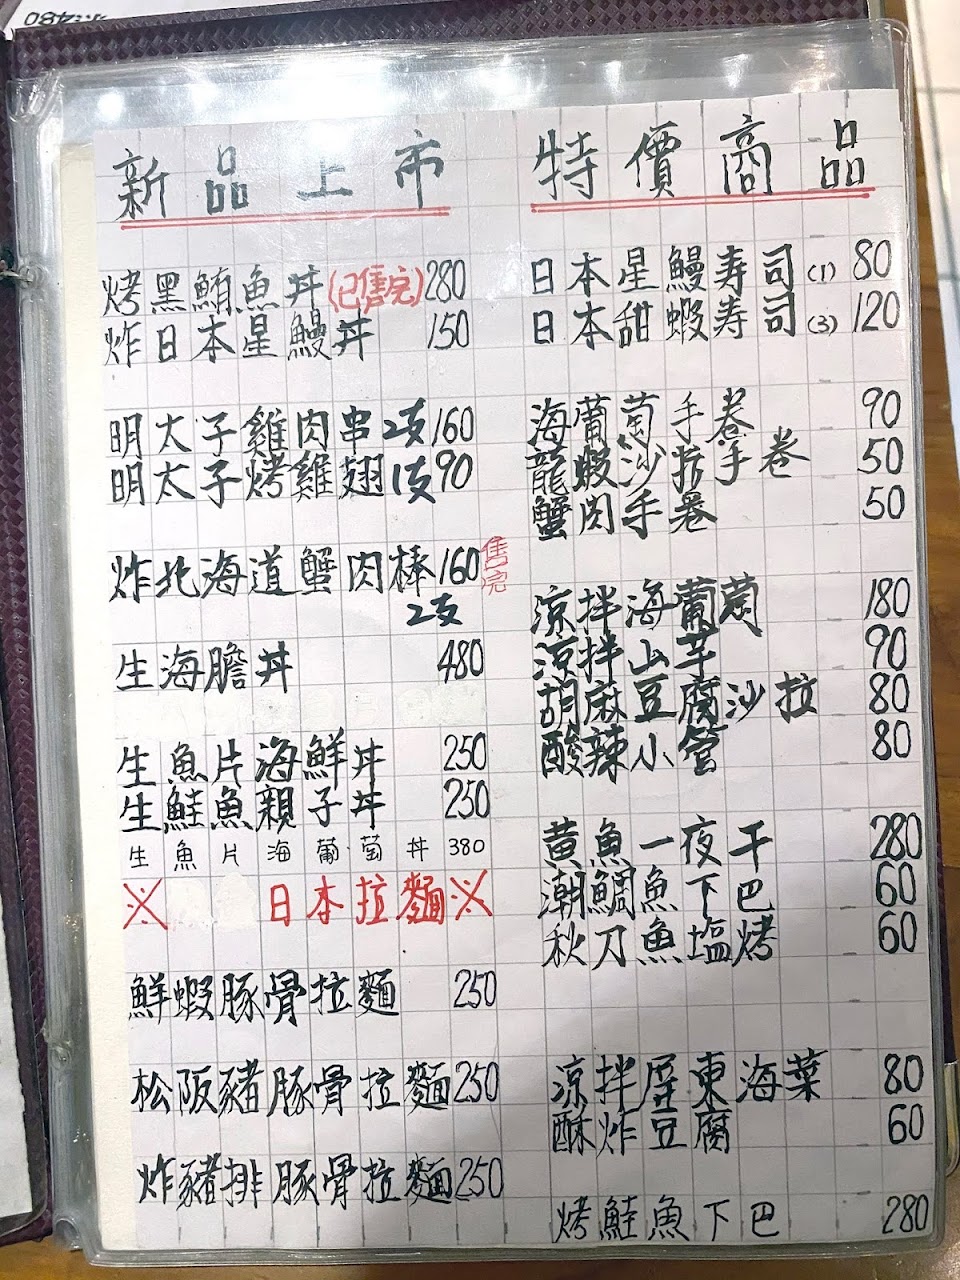 新品上市
烤黑鮪魚丼(已售完)280
炸日本星鰻丼 150
明太子雞肉串2支160
明太子烤雞翅1支90
炸北海道蟹肉棒160 售完
2支
生海膽丼 480
生魚片海鮮丼 250
生鮭魚親子丼 250
生魚片海葡萄丼 380
※ 日本拉麵※
鮮蝦豚骨拉麵 250
松阪豬豚骨拉麵250
炸豬排豚骨拉麵250
特價商品
日本星鰻寿司(1) 80
日本甜蝦寿司(3) 120
海葡萄手卷 90
龍蝦沙拉手卷 50
蟹肉手卷 50
涼拌海葡萄 180
涼拌山芋 90
胡麻豆腐沙拉 80
酸辣小管 80
黃魚一夜干 280
潮鯛魚下巴 60
秋刀魚塩烤 60
涼拌屏東海菜 80
酥炸豆腐 60
烤鮭魚下巴 280